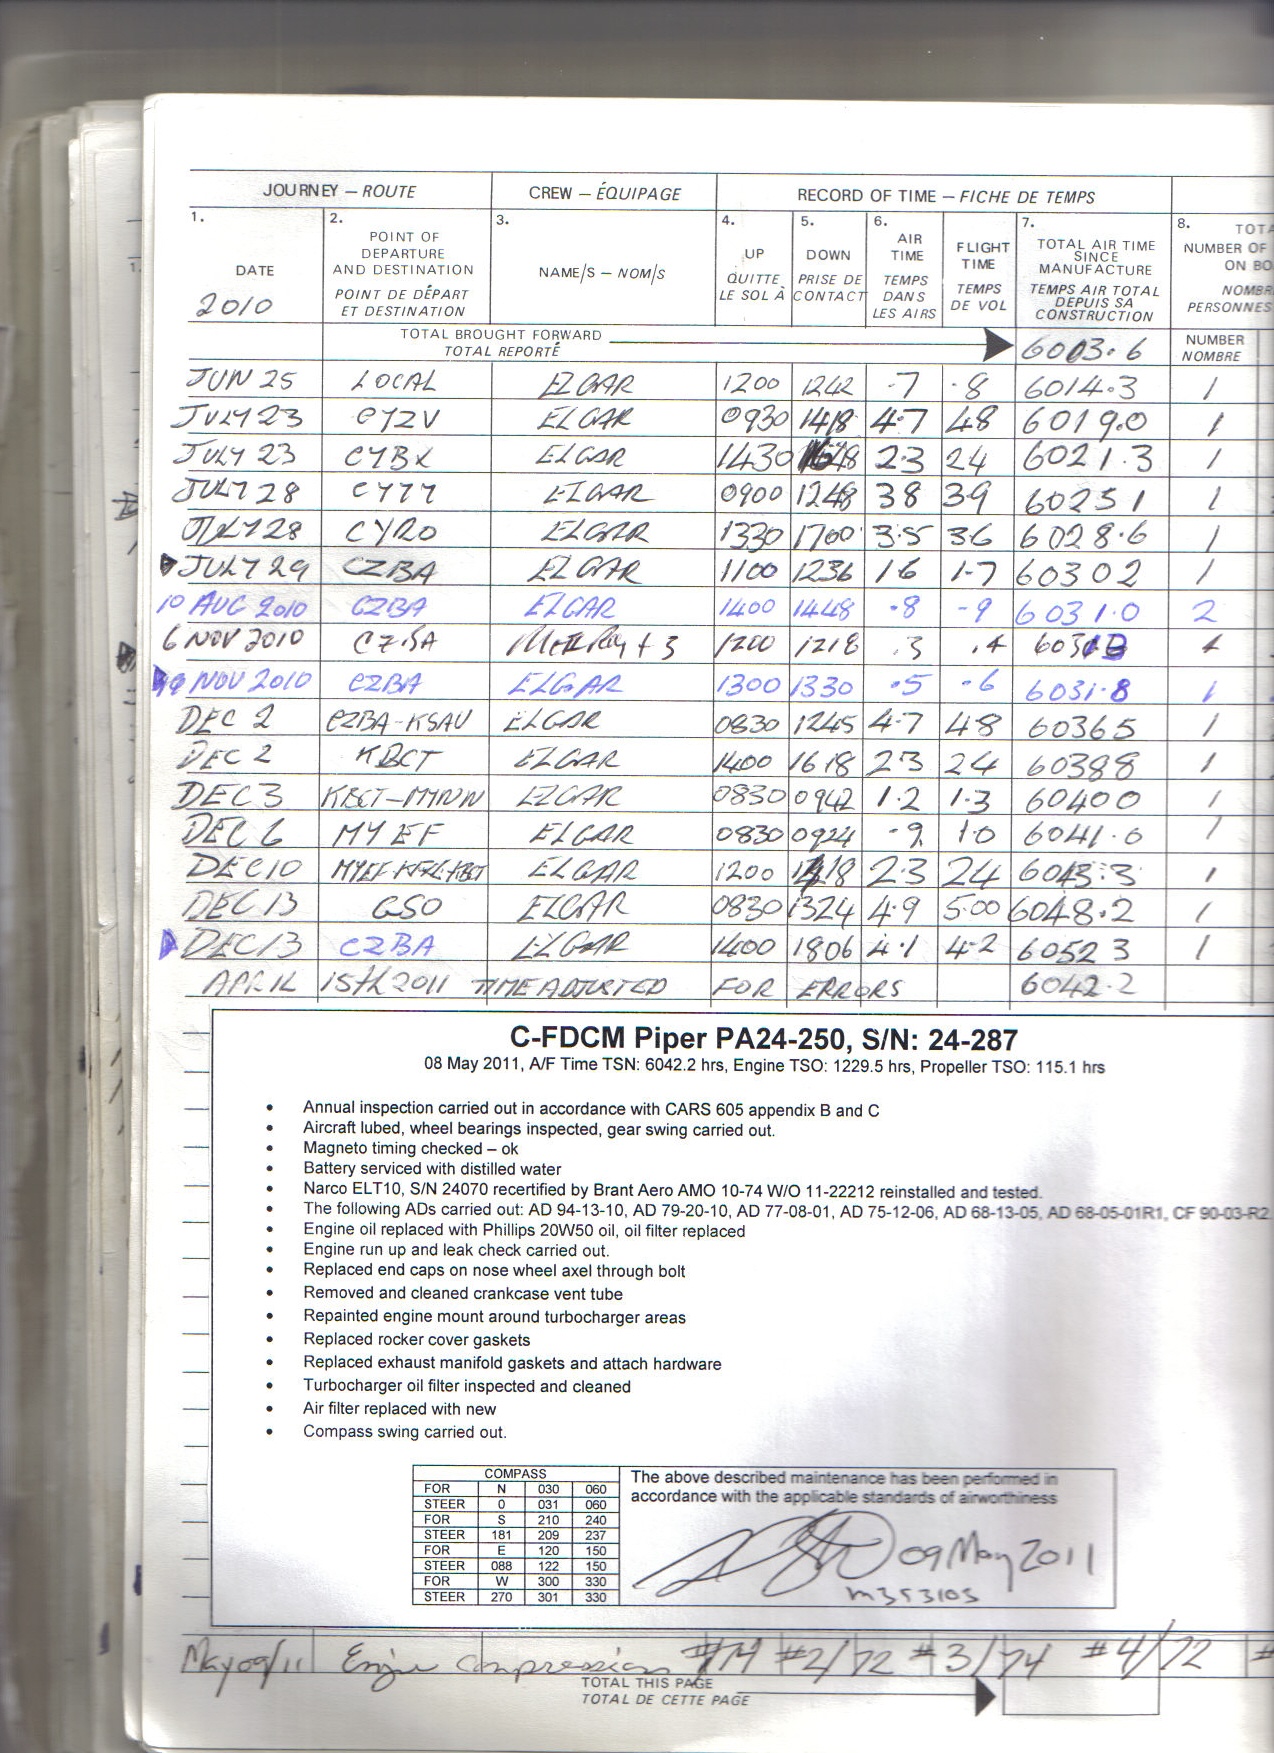 JOURNEY – ROUTE CREW – ÉQUIPAGE RECORD OF TIME – FICHE DE TEMPS
1. 2. 3. 4. 5. 6. 7. 8. TOTA
DATE POINT OF DEPARTURE AND DESTINATION NAME/S – NOM/S UP DOWN AIR TIME FLIGHT TIME TOTAL AIR TIME SINCE MANUFACTURE NUMBER OF ON BO
2010 POINT DE DÉPART ET DESTINATION QUITTE LE SOL À PRISE DE CONTACT TEMPS DANS LES AIRS TEMPS DE VOL TEMPS AIR TOTAL DEPUIS SA CONSTRUCTION NOMBR PERSONNES
TOTAL BROUGHT FORWARD 6003.6 NUMBER
TOTAL REPORTÉ NOMBRE
JUN 25 LOCAL ELGAR 1200 1242 .7 .8 6014.3 1
JULY 23 CYZV ELGAR 0930 1418 4.7 48 6019.0 1
JULY 23 CYBX ELGAR 1430 1648 2.3 24 6021.3 1
JULY 28 CYYY ELGAR 0900 1248 38 39 60251 1
JULY 28 CYRO ELGAR 1330 1700 3.5 36 6028.6 1
JULY 29 CZBA ELGAR 1100 1236 16 1.7 60302 1
10 AUG 2010 CZBA ELGAR 1400 1448 .8 .9 6031.0 2
6 NOV 2010 CZBA + 3 1200 1218 .3 .4 4
NOV 2010 CZBA ELGAR 1300 1330 .5 .6 6031.8 1
DEC 2 CZBA-KSAV ELGAR 0830 1245 4.7 48 60365 1
DEC 2 KBCT ELGAR 1400 1618 23 24 60388 1
DEC 3 KBCT-MYNN ELGAR 0830 0942 1.2 1.3 60400 1
DEC 6 MYEF ELGAR 0830 0924 .9 1.0 6041.0 1
DEC 10 ELGAR 1200 1418 2.3 24 6043.3 1
DEC 13 GSO ELGAR 0830 1324 4.9 5.00 6048.2 1
DEC 13 CZBA ELGAR 1400 1806 4.1 4.2 60523 1
APRIL 15th 2011 TIME ADJUSTED FOR ERRORS 6042.2
C-FDCM Piper PA24-250, S/N: 24-287
08 May 2011, A/F Time TSN: 6042.2 hrs, Engine TSO: 1229.5 hrs, Propeller TSO: 115.1 hrs
• Annual inspection carried out in accordance with CARS 605 appendix B and C
• Aircraft lubed, wheel bearings inspected, gear swing carried out.
• Magneto timing checked – ok
• Battery serviced with distilled water
• Narco ELT10, S/N 24070 recertified by Brant Aero AMO 10-74 W/O 11-22212 reinstalled and tested.
• The following ADs carried out: AD 94-13-10, AD 79-20-10, AD 77-08-01, AD 75-12-06, AD 68-13-05, AD 68-05-01R1, CF 90-03-R2
• Engine oil replaced with Phillips 20W50 oil, oil filter replaced
• Engine run up and leak check carried out.
• Replaced end caps on nose wheel axel through bolt
• Removed and cleaned crankcase vent tube
• Repainted engine mount around turbocharger areas
• Replaced rocker cover gaskets
• Replaced exhaust manifold gaskets and attach hardware
• Turbocharger oil filter inspected and cleaned
• Air filter replaced with new
• Compass swing carried out.
COMPASS
FOR N 030 060
STEER 0 031 060
FOR S 210 240
STEER 181 209 237
FOR E 120 150
STEER 088 122 150
FOR W 300 330
STEER 270 301 330
The above described maintenance has been performed in
accordance with the applicable standards of airworthiness
09 May 2011
m353103
May 09/11 Engine compression #2/72 #3/74 #4/72 #
TOTAL THIS PAGE
TOTAL DE CETTE PAGE